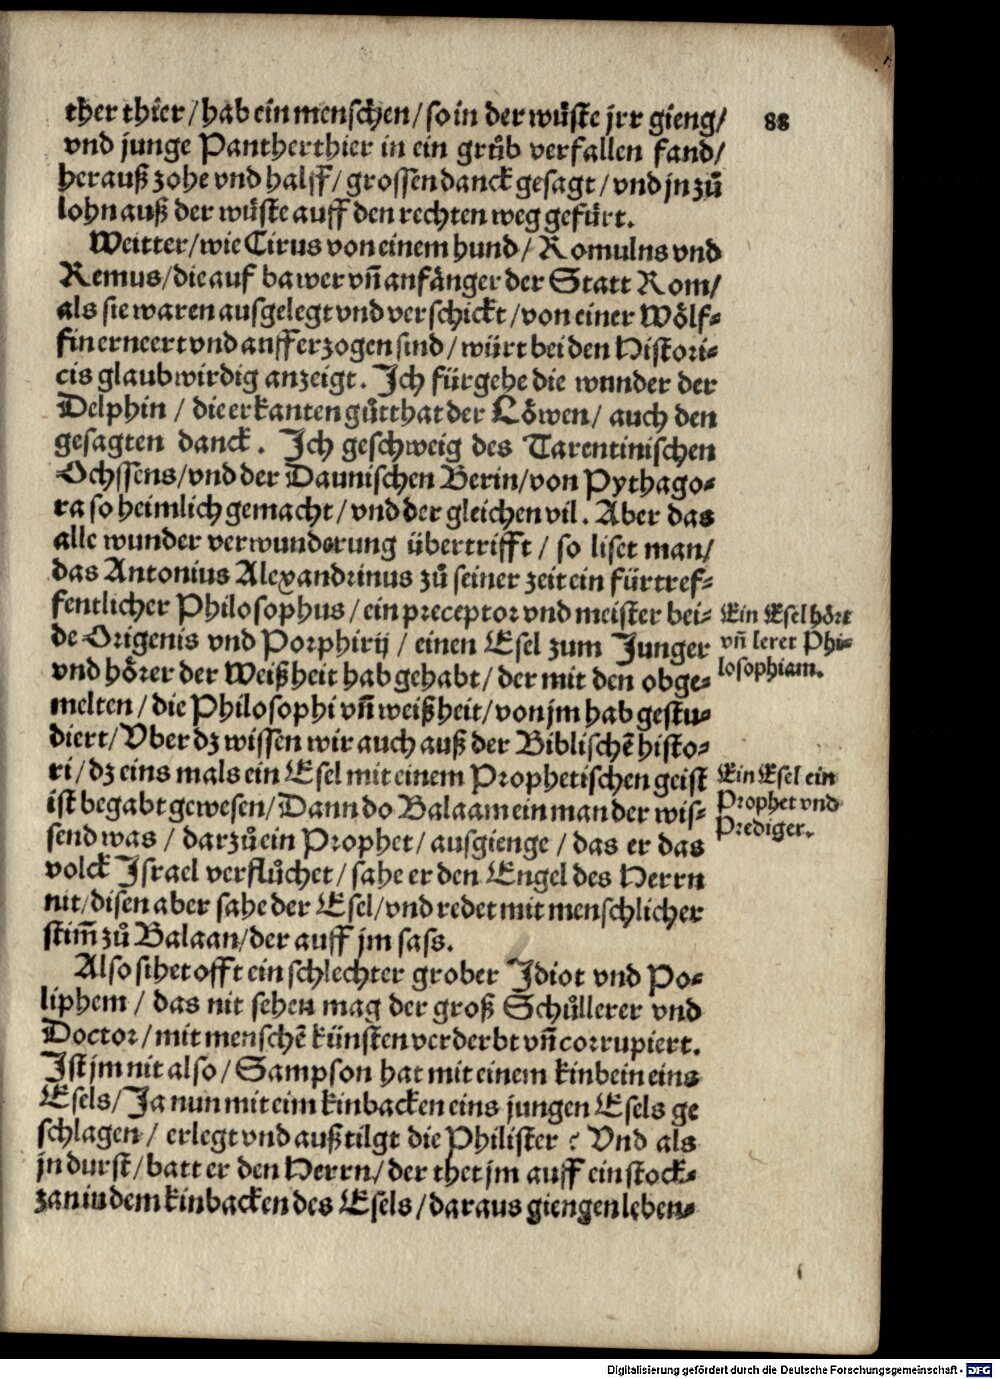 ther thier / hab ein menschen / so in der wuͤste jrr gieng /
88
vnd junge Pantherthier in ein gruͦb verfallen fand /
herauß zohe vnd halff / grossen danck gesagt / vnd jn zuͦ
lohn auß der wuͤste auff den rechten weg gefuͤrt.
Weitter / wie Cirus von einem hund / Romulns vnd
Remus / die auf bawer vñ anfaͤnger der Statt Rom /
als sie waren ausgelegt vnd verschickt / von einer Woͤlf⸗
fin erneert vnd aufferzogen sind / wuͤrt bei den Histori⸗
cis glaubwirdig anzeigt. Ich fuͤrgehe die wunder der
Delphin / die erkanten guͦtthat der Loͤwen / auch den
gesagten danck. Ich geschweig des Tarentinischen
Ochssens / vnd der Daunischen Berin / von Pythago⸗
ra so heimlich gemacht / vnd der gleichen vil. Aber das
alle wunder verwunderung uͤbertrifft / so liset man /
das Antonius Alexandrinus zuͦ seiner zeit ein fuͤrtref⸗
fentlicher Philosophus / ein preceptor vnd meister bei⸗
de Origenis vnd Porphirij / einen Esel zum Junger
vnd hoͤrer der Weißheit hab gehabt / der mit den obge⸗
melten / die Philosophi vñ weißheit / von jm hab gestu⸗
diert / Vber dz wissen wir auch auß der Biblischẽ histo⸗
ri / dz eins mals ein Esel mit einem Prophetischen geist
ist begabt gewesen / Dann do Balaam ein man der wis⸗
send was / darzuͦ ein Prophet / ausgienge / das er das
volck Israel verfluͦchet / sahe er den Engel des Herrn
nit / disen aber sahe der Esel / vnd redet mit menschlicher
stim̃ zuͦ Balaan / der auff jm sass.
Also sihet offt ein schlechter grober Idiot vnd Po⸗
liphem / das nit sehen mag der groß Schuͤllerer vnd
Doctor / mit menschẽ kuͤnsten verderbt vñ corrupiert.
Ist jm nit also / Sampson hat mit einem kinbein eins
Esels / Ja nun mit eim kinbacken eins jungen Esels ge
schlagen / erlegt vnd außtilgt die Philister ? Vnd als
jn durst / batt er den Herrn / der thet jm auff ein stock⸗
zan in dem kinbacken des Esels / daraus giengen leben⸗
Ein Esel hoͤrt
vñ leret Phi⸗
losophiam.
Ein Esel ein
Prophet vnd
Prediger.
Digitalisierung gefördert durch die Deutsche Forschungsgemeinschaft - DFG